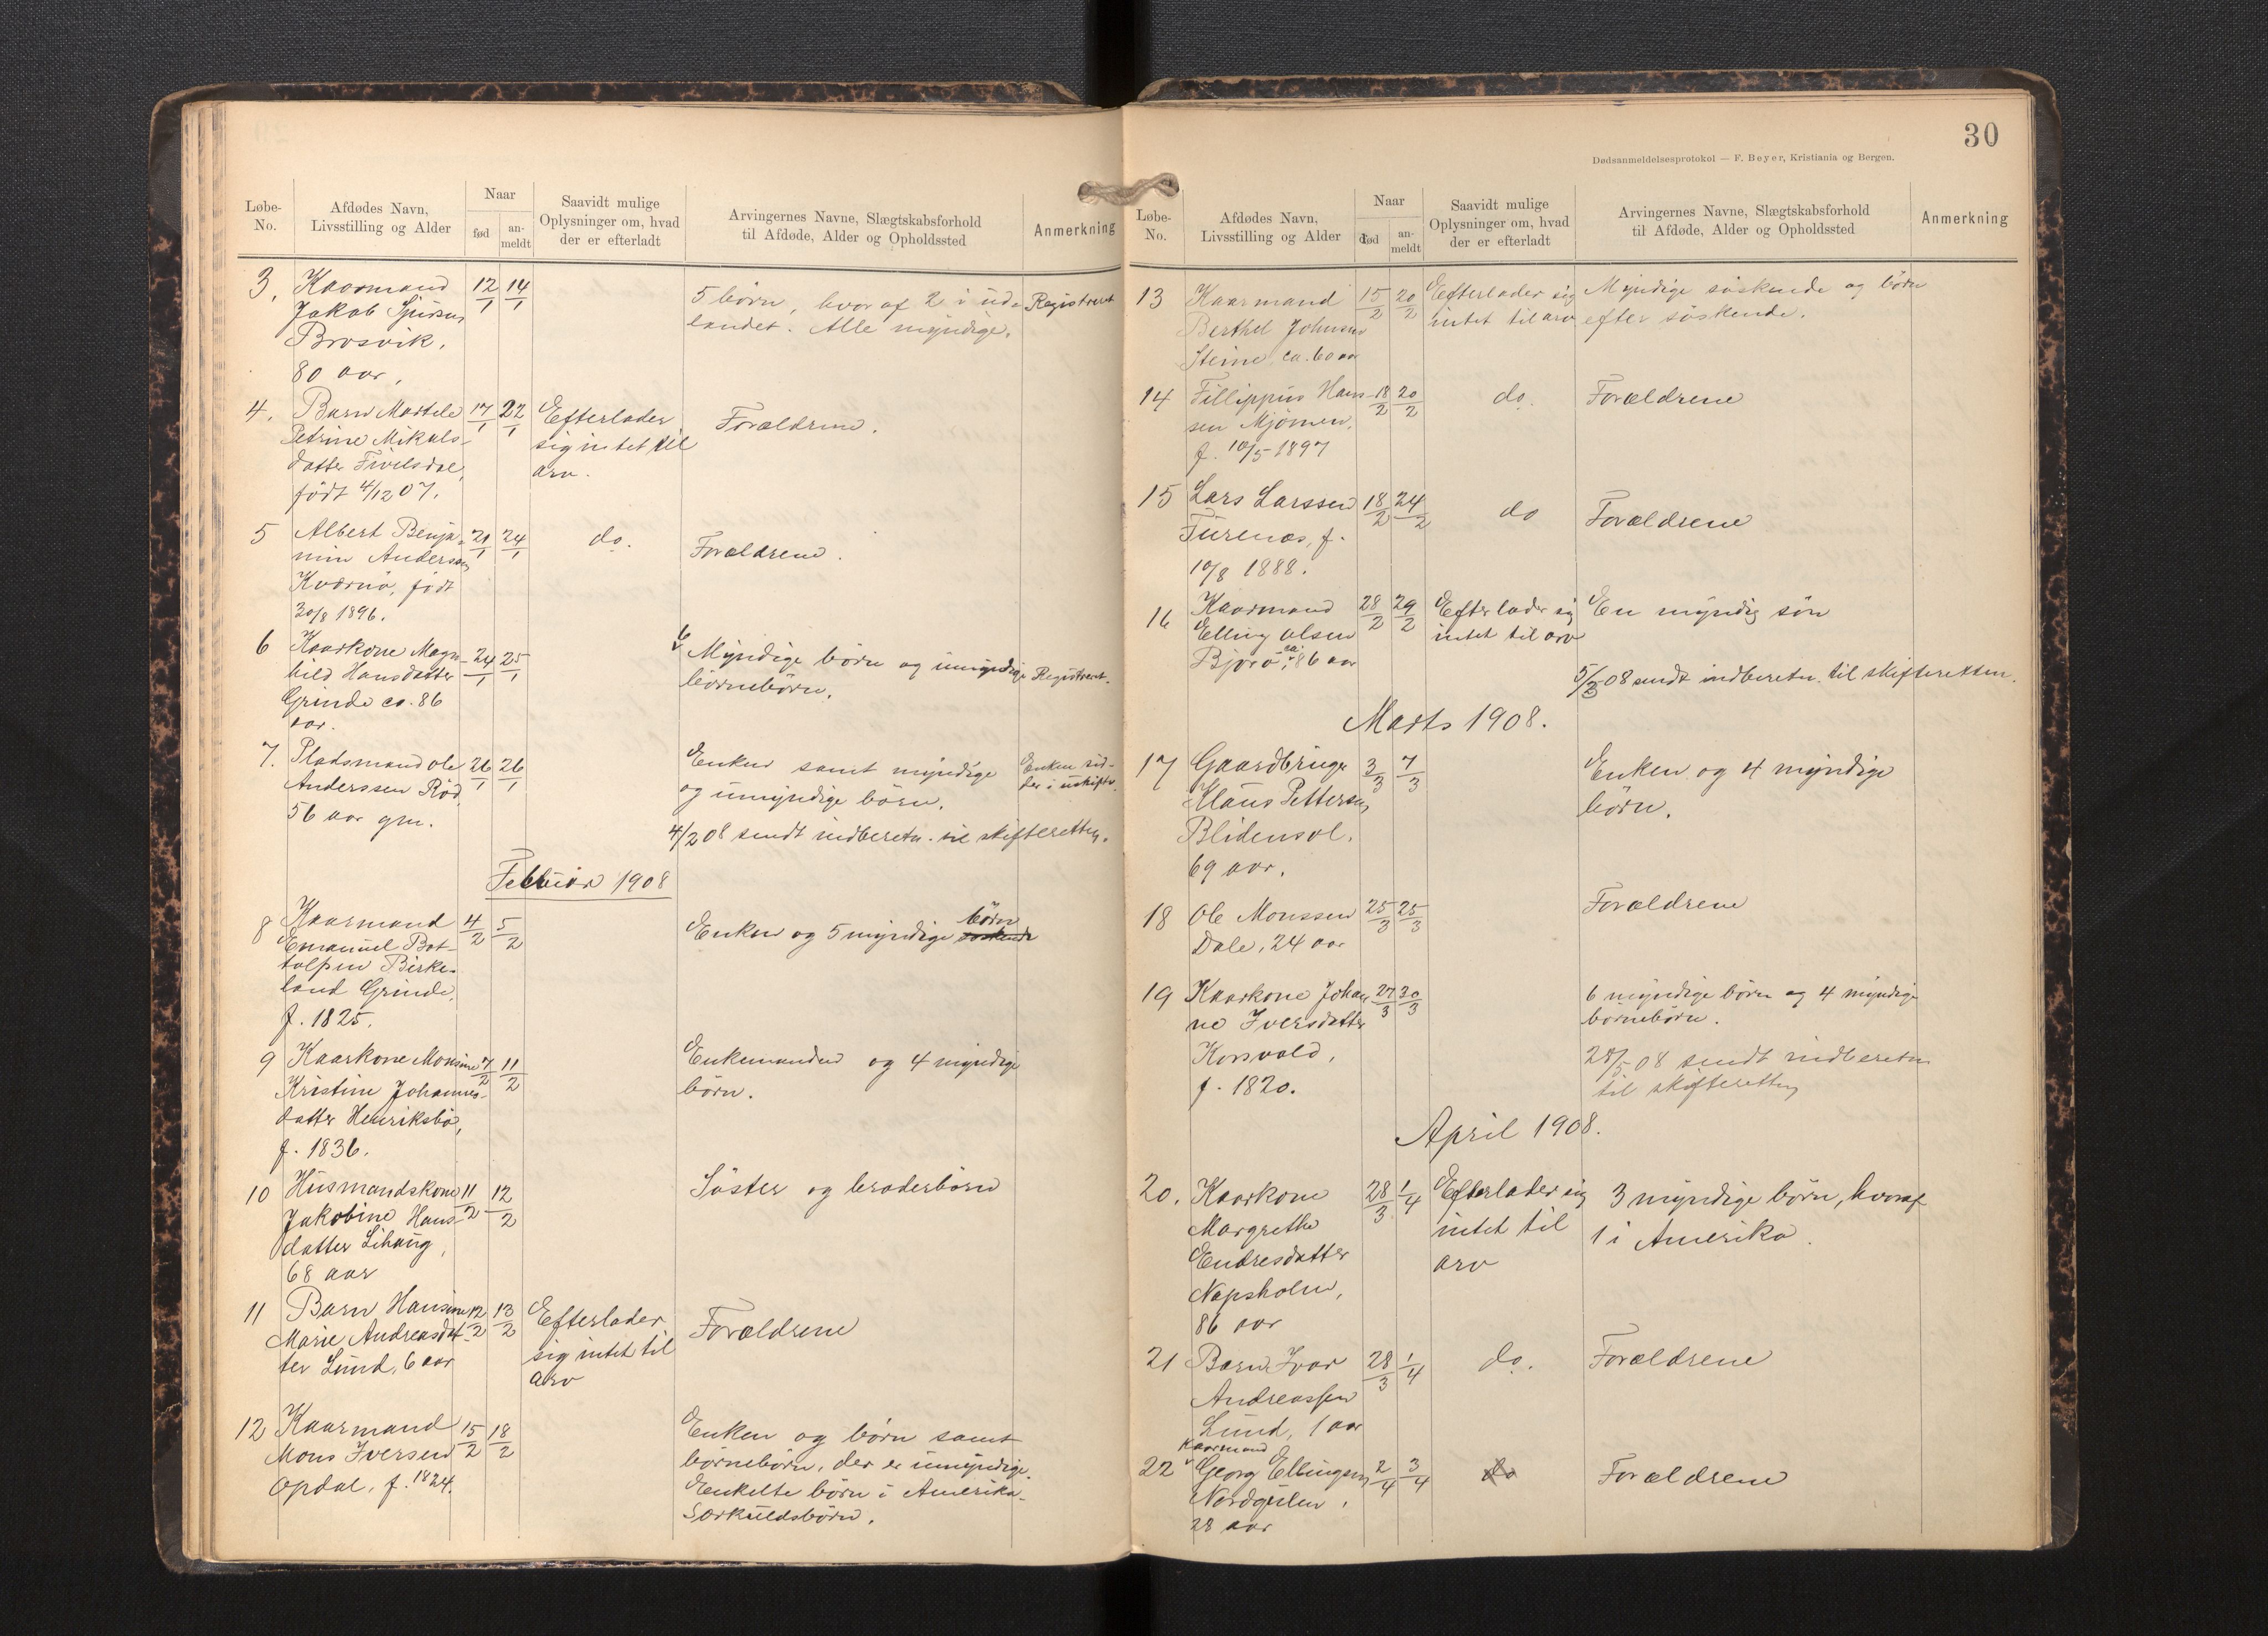 Løbe-
No.
Afdødes Navn,
Livsstilling og Alder
Naar
fød
an-
meldt
Saavidt mulige
Oplysninger om, hvad
der er efterladt
Arvingernes Navne, Slægtskabsforhold
til Afdøde, Alder og Opholdssted
Anmerkning
3. Kaarmand 12/1 14/1 5 børn, hvoraf 2 i ud- Registreret
Jakob landet. Alle myndige.
Brosvik.
80 aar.
4. Barn Martele 17/1 22/1 Efterlader Forældrene.
Petrine Mikals- sig intet til
datter Fivelsdal, arv.
født 4/12 07.
5 Albert Benja- 21/1 24/1 do. Forældrene.
min Anderssen
Kværnø, født
30/8 1896.
6 Kaarkone Mag- 24/1 25/1 6 Myndige børn og umyndige Registreret.
hild Hansdatter børnebørn.
Grinde ca. 86
aar.
7. Pladsmand Ole 26/1 26/1 Enken samt myndige Enken sid-
Anderssen Rød og umyndige børn. der i uskifte.
56 aar gm.
4/2 08 sendt indberetn. til skifteretten.
Februar 1908
8 Kaarmand 4/2 5/2 Enken og 5 myndige søskende børn
Emanuel Bot-
tolfsen Birke-
land Grinde,
f. 1825.
9 Kaarkone Monsine 7/2 11/2 Enkemanden og 4 myndige
Kristine Johannes- børn.
datter Henriksbø,
f. 1836.
10 Husmandskone 11/2 12/2 Søster og broderbørn
Jakobine Hans-
datter Lihaug,
68 aar
11 Barn Hansine 12/2 13/2 Efterlader Forældrene
Marie Andreasdat- sig intet til
ter Lund, 6 aar arv
12 Kaarmand 15/2 18/2 Enken og børn samt
Mons Iversen børnebørn, der er umyndige.
Opdal, f. 1824. Enkelte børn i Amerika.
Særkuldsbørn.
30
Dødsanmeldelsesprotokol — F. Beyer, Kristiania og Bergen.
Løbe-
No.
Afdødes Navn,
Livsstilling og Alder
Naar
død
an-
meldt
Saavidt mulige
Oplysninger om, hvad
der er efterladt
Arvingernes Navne, Slægtskabsforhold
til Afdøde, Alder og Opholdssted
Anmerkning
13 Kaarmand 15/2 20/2 Efterlader sig Myndige søskende og børn
Berthel Johnsen intet til arv efter søskende.
Steine ca. 60 aar
14 Fillippus Han- 18/2 20/2 do. Forældrene
sen Mjømen,
f. 10/5 1897
15 Lars Larssen 18/2 24/2 do Forældrene
Furenes, f.
10/8 1888.
16 Kaarmand 28/2 29/2 Efterlader sig En myndig søn
Elling Olsen intet til arv
Bjørø, ca. 86 aar
5/3 08 sendt indberetn. til skifteretten.
Marts 1908.
17 Gaardbruger 3/3 7/3 Enken og 4 myndige
Klaus Pettersen børn.
Blidensol.
69 aar.
18 Ole Monssen 25/3 25/3 Forældrene
Dale, 24 aar
19 Kaarkone Johan- 27/3 30/3 6 myndige børn og 4 myndige
ne Iversdatter børnebørn.
Korsvold,
f. 1820.
28/5 08 sendt indberetn
til skifteretten
April 1908.
20. Kaarkone 28/3 1/4 Efterlader sig 3 myndige børn, hvoraf
Margrethe intet til 1 i Amerika.
Endresdatter arv
Napsholm,
86 aar
21 Barn Ivar 28/3 1/4 do. Forældrene
Andreassen
Lund, 1 aar
Kaarmand
22 Georg Ellingsen 2/4 3/4 do Forældrene
Nordgulen.
28 aar